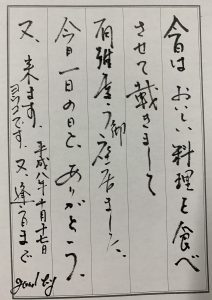 今日は おいしい料理を食べ
させて戴きまして
有難度う御座居ました、
今日一日の日を、ありがとう、
又、来ます、平成八年十月十七日
です。又逢う日まで
good by